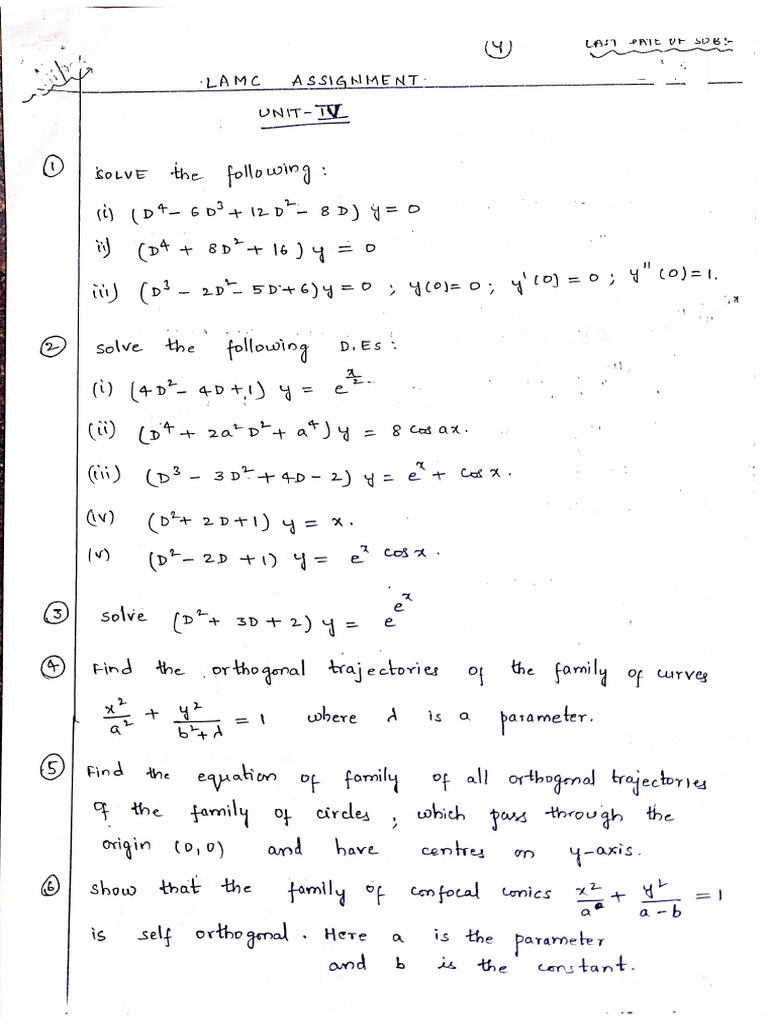 (4) LAST DATE OF SUB:-
LAMC ASSIGNMENT.
UNIT-IV
① SOLVE the following :
(i) (D⁴ - 6D³ + 12D² - 8D) y = 0
ii) (D⁴ + 8D² + 16) y = 0
iii) (D³ - 2D² - 5D + 6) y = 0 ; y(0) = 0 ; y'(0) = 0 ; y''(0) = 1.
② Solve the following D.Es :
(i) (4D² - 4D + 1) y = e^(x/2).
(ii) (D⁴ + 2a²D² + a⁴) y = 8 cos ax.
(iii) (D³ - 3D² + 4D - 2) y = e^x + cos x.
(iv) (D² + 2D + 1) y = x.
(v) (D² - 2D + 1) y = e^x cos x.
③ Solve (D² + 3D + 2) y = e^(e^x)
④ Find the orthogonal trajectories of the family of curves
x²/a² + y²/(b²+λ) = 1 where λ is a parameter.
⑤ Find the equation of family of all orthogonal trajectories
of the family of circles, which pass through the
origin (0,0) and have centres on y-axis.
⑥ Show that the family of confocal conics x²/a + y²/(a-b) = 1
is self orthogonal. Here a is the parameter
and b is the constant.